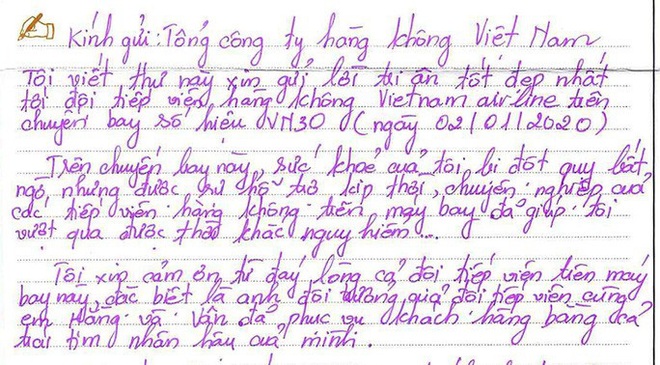 Kính gửi: Tổng công ty hàng không Việt Nam
Tôi viết thư này xin gửi lời tri ân tốt đẹp nhất
tới đội tiếp viện hàng không Vietnam airline trên
chuyến bay số hiệu VN30 (ngày 02/01/2020)
Trên chuyến bay này, sức khoẻ của tôi bị đột quỵ bất
ngờ, nhưng được sự hỗ trợ kịp thời, chuyên nghiệp của
các tiếp viện hàng không trên máy bay đã giúp tôi
vượt qua được thời khắc nguy hiểm...
Tôi xin cảm ơn từ đáy lòng cả đội tiếp viện trên máy
bay này, đặc biệt là anh đội trưởng quả đội tiếp viên cùng
em Hằng và Vân đã phục vụ khách hàng bằng cả
trái tim nhân hậu của mình.